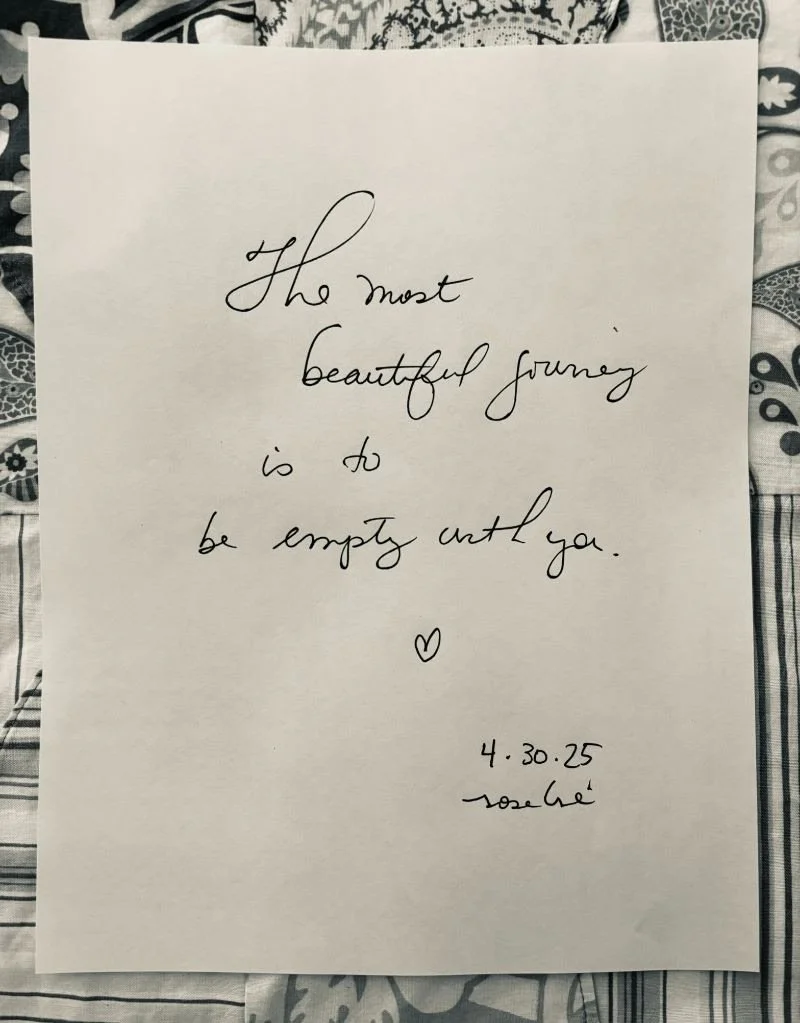 The most
beautiful journey
is to
be empty with you.
♡
4.30.25